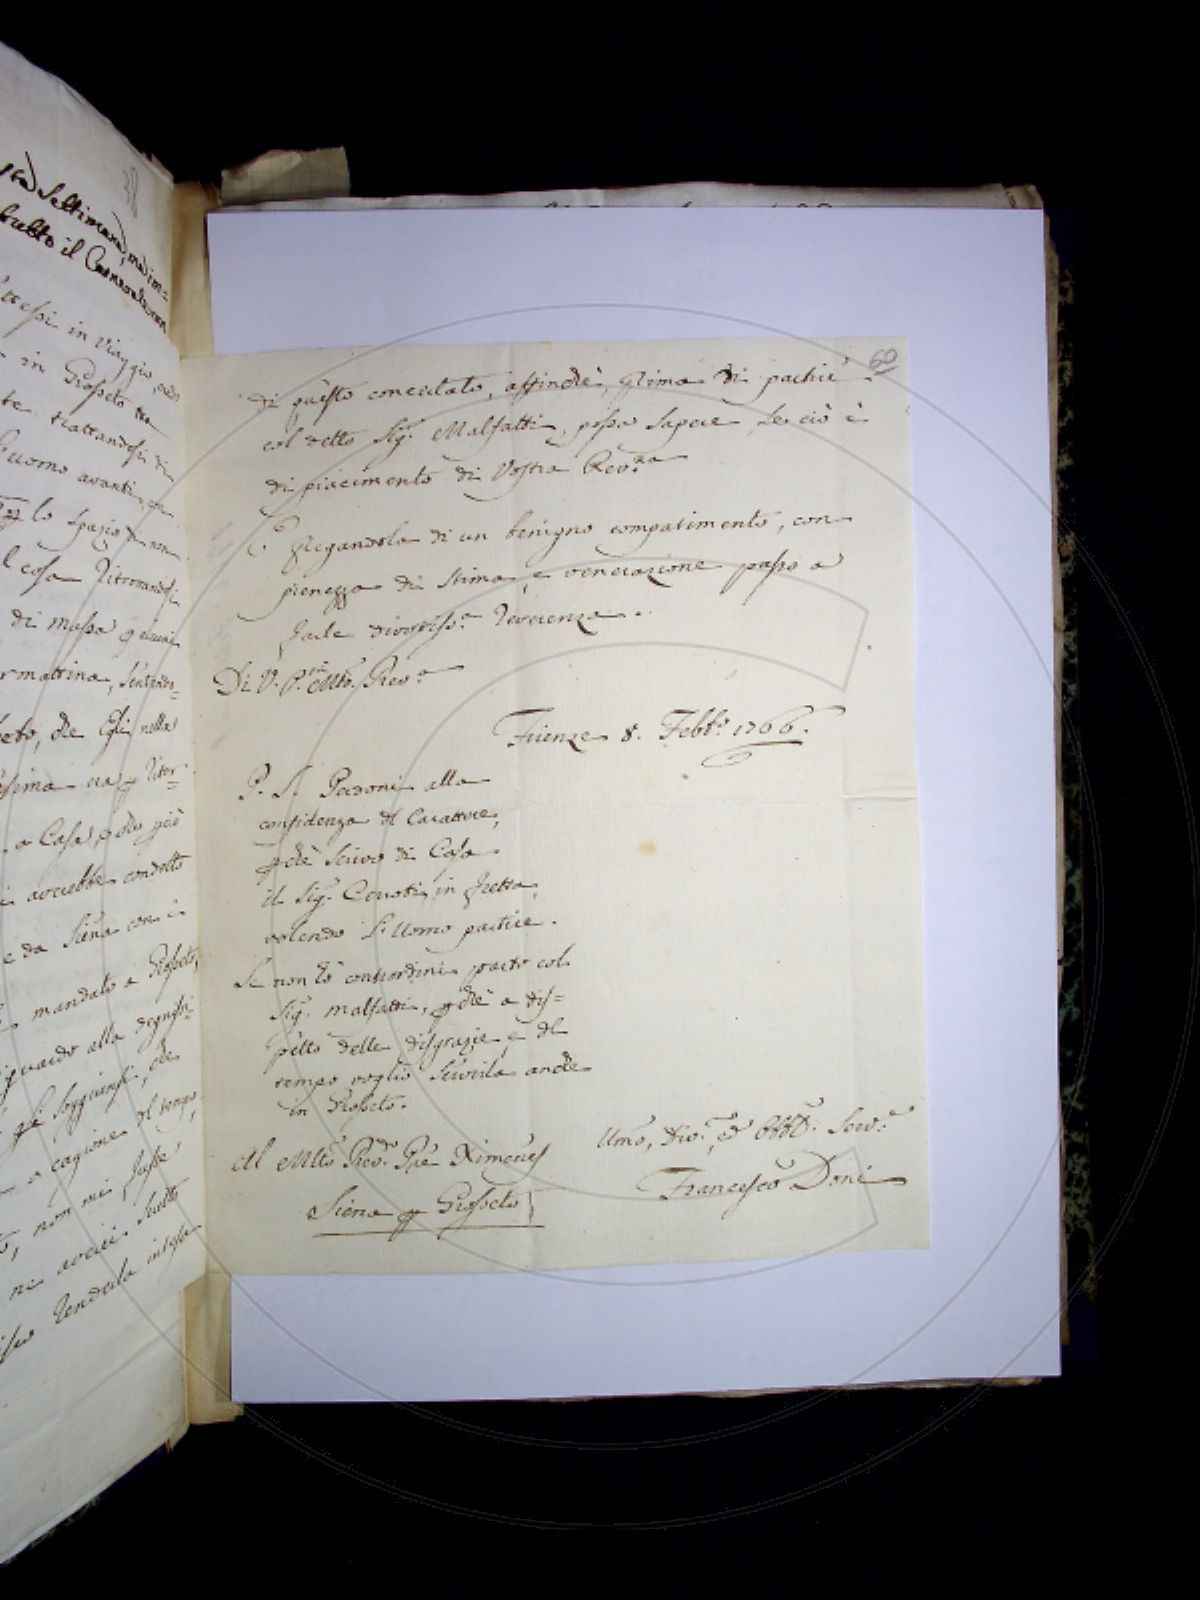 60
di questo concertato, affinchè, prima di partire
col detto Sig.r Malfatti, possa sapere, se ciò è
di piacimento di Vostra Rev.ma
E pregandola di un benigno compatimento, con
pienezza di stima, e venerazione passo a
farle divotiss.a reverenza.
Di V. P.tà Mto. Rev.a
Firenze 8. Febb.o 1766.
P. S. Perdoni alla
confidenza del Carattere,
pchè scrivo di Casa
il Sig.r Ceruti, in fretta,
volendo l'Uomo partire.
Se non hò contrordini parto col
Sig.r Malfatti, pchè a dis=
petto delle disgrazie, e del
tempo voglio servirla anche
in Grosseto.
Umo, Div.o, ed Obbl.o Serv.e
Francesco Doni
Al Mto Rev.do Pre Ximenes
Siena p Grosseto
Settimana, ma im=
tutto il Carnevale non
in Viaggio, credo
in Grosseto
te trattandosi di
Uomo avanti, e
p lo spazio di
cosa ritrovandosi
di massa
mattina,
che Egli nella
era p ritor=
a Casa, e che già
avrebbe condotto
e da Siena con
mandato a Grosseto,
riguardo alla
gli soggiunsi, che
a cagione del tempo
non mi fusse
avrei fatto
renderla intesa